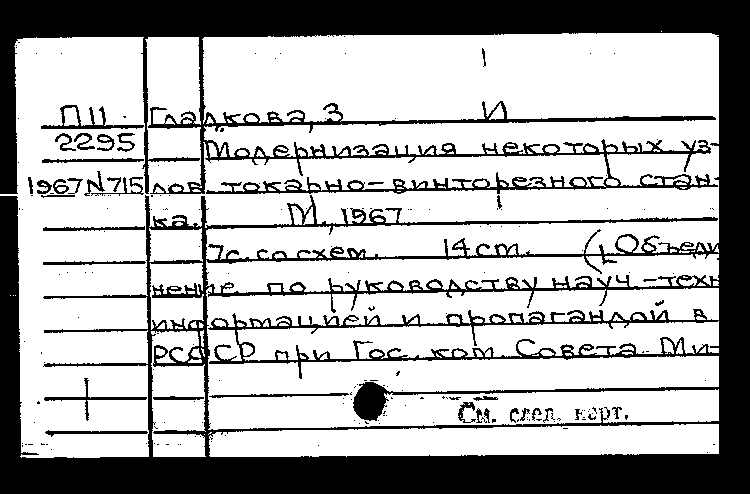 П11 Гладкова, З И
2295 Модернизация некоторых уз-
1967 N 715 лов токарно-винторезного стан-
ка. М., 1967
7с. со схем. 14 cm. ([Объеди
нение по руководству науч.-техн
информацией и пропагандой в
РСФСР при Гос. ком. Совета Ми-
См. след. карт.